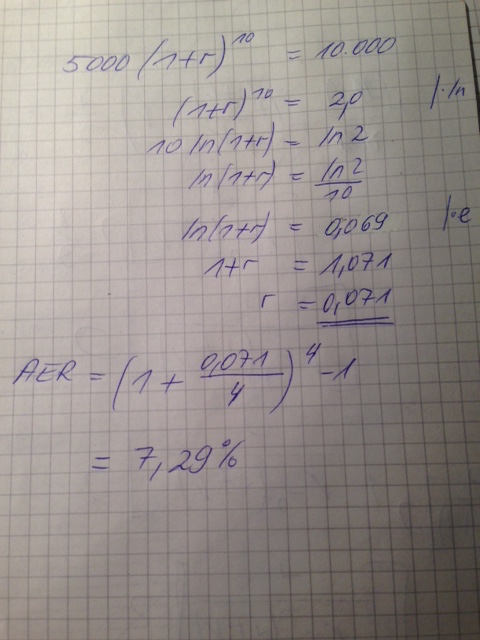 5000 (1+r)^10 = 10.000
(1+r)^10 = 2,0 |·ln
10 ln(1+r) = ln 2
ln(1+r) = ln 2 / 10
ln(1+r) = 0,069 |·e
1+r = 1,071
r = 0,071
AER = (1 + 0,071/4)^4 - 1
= 7,29%